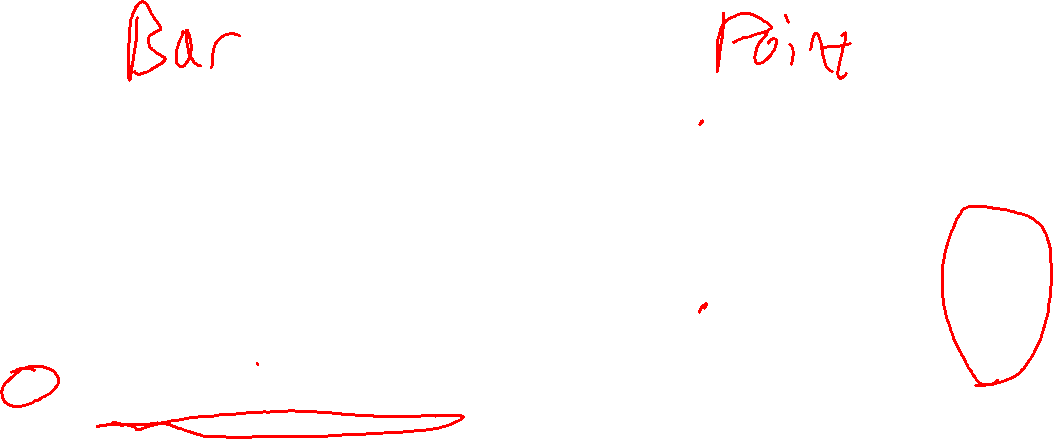 Bar Point